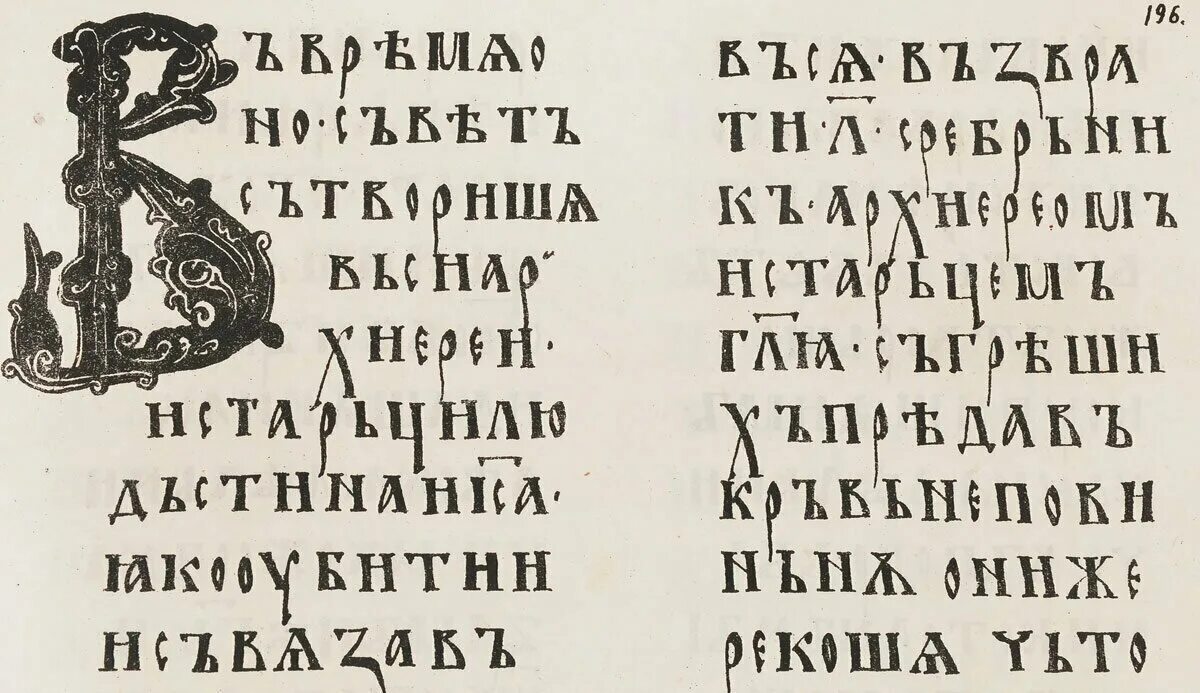 196.
Въврѣмѧо
но·съвѣтъ
сътворишѧ
вьсиар
хиереи·
истарьцилю
дьстиинаіс҃а·
ꙗкооубитии
исъвѧзавъ
въсѧ·възвра
ти·л҃·сребрьни
къ·архиереомъ
истарьцемъ
гл҃ѩ·съгрѣши
хъпрѣдавъ
кръвьнепови
ньнѫ ониже
рекошѧ чьто